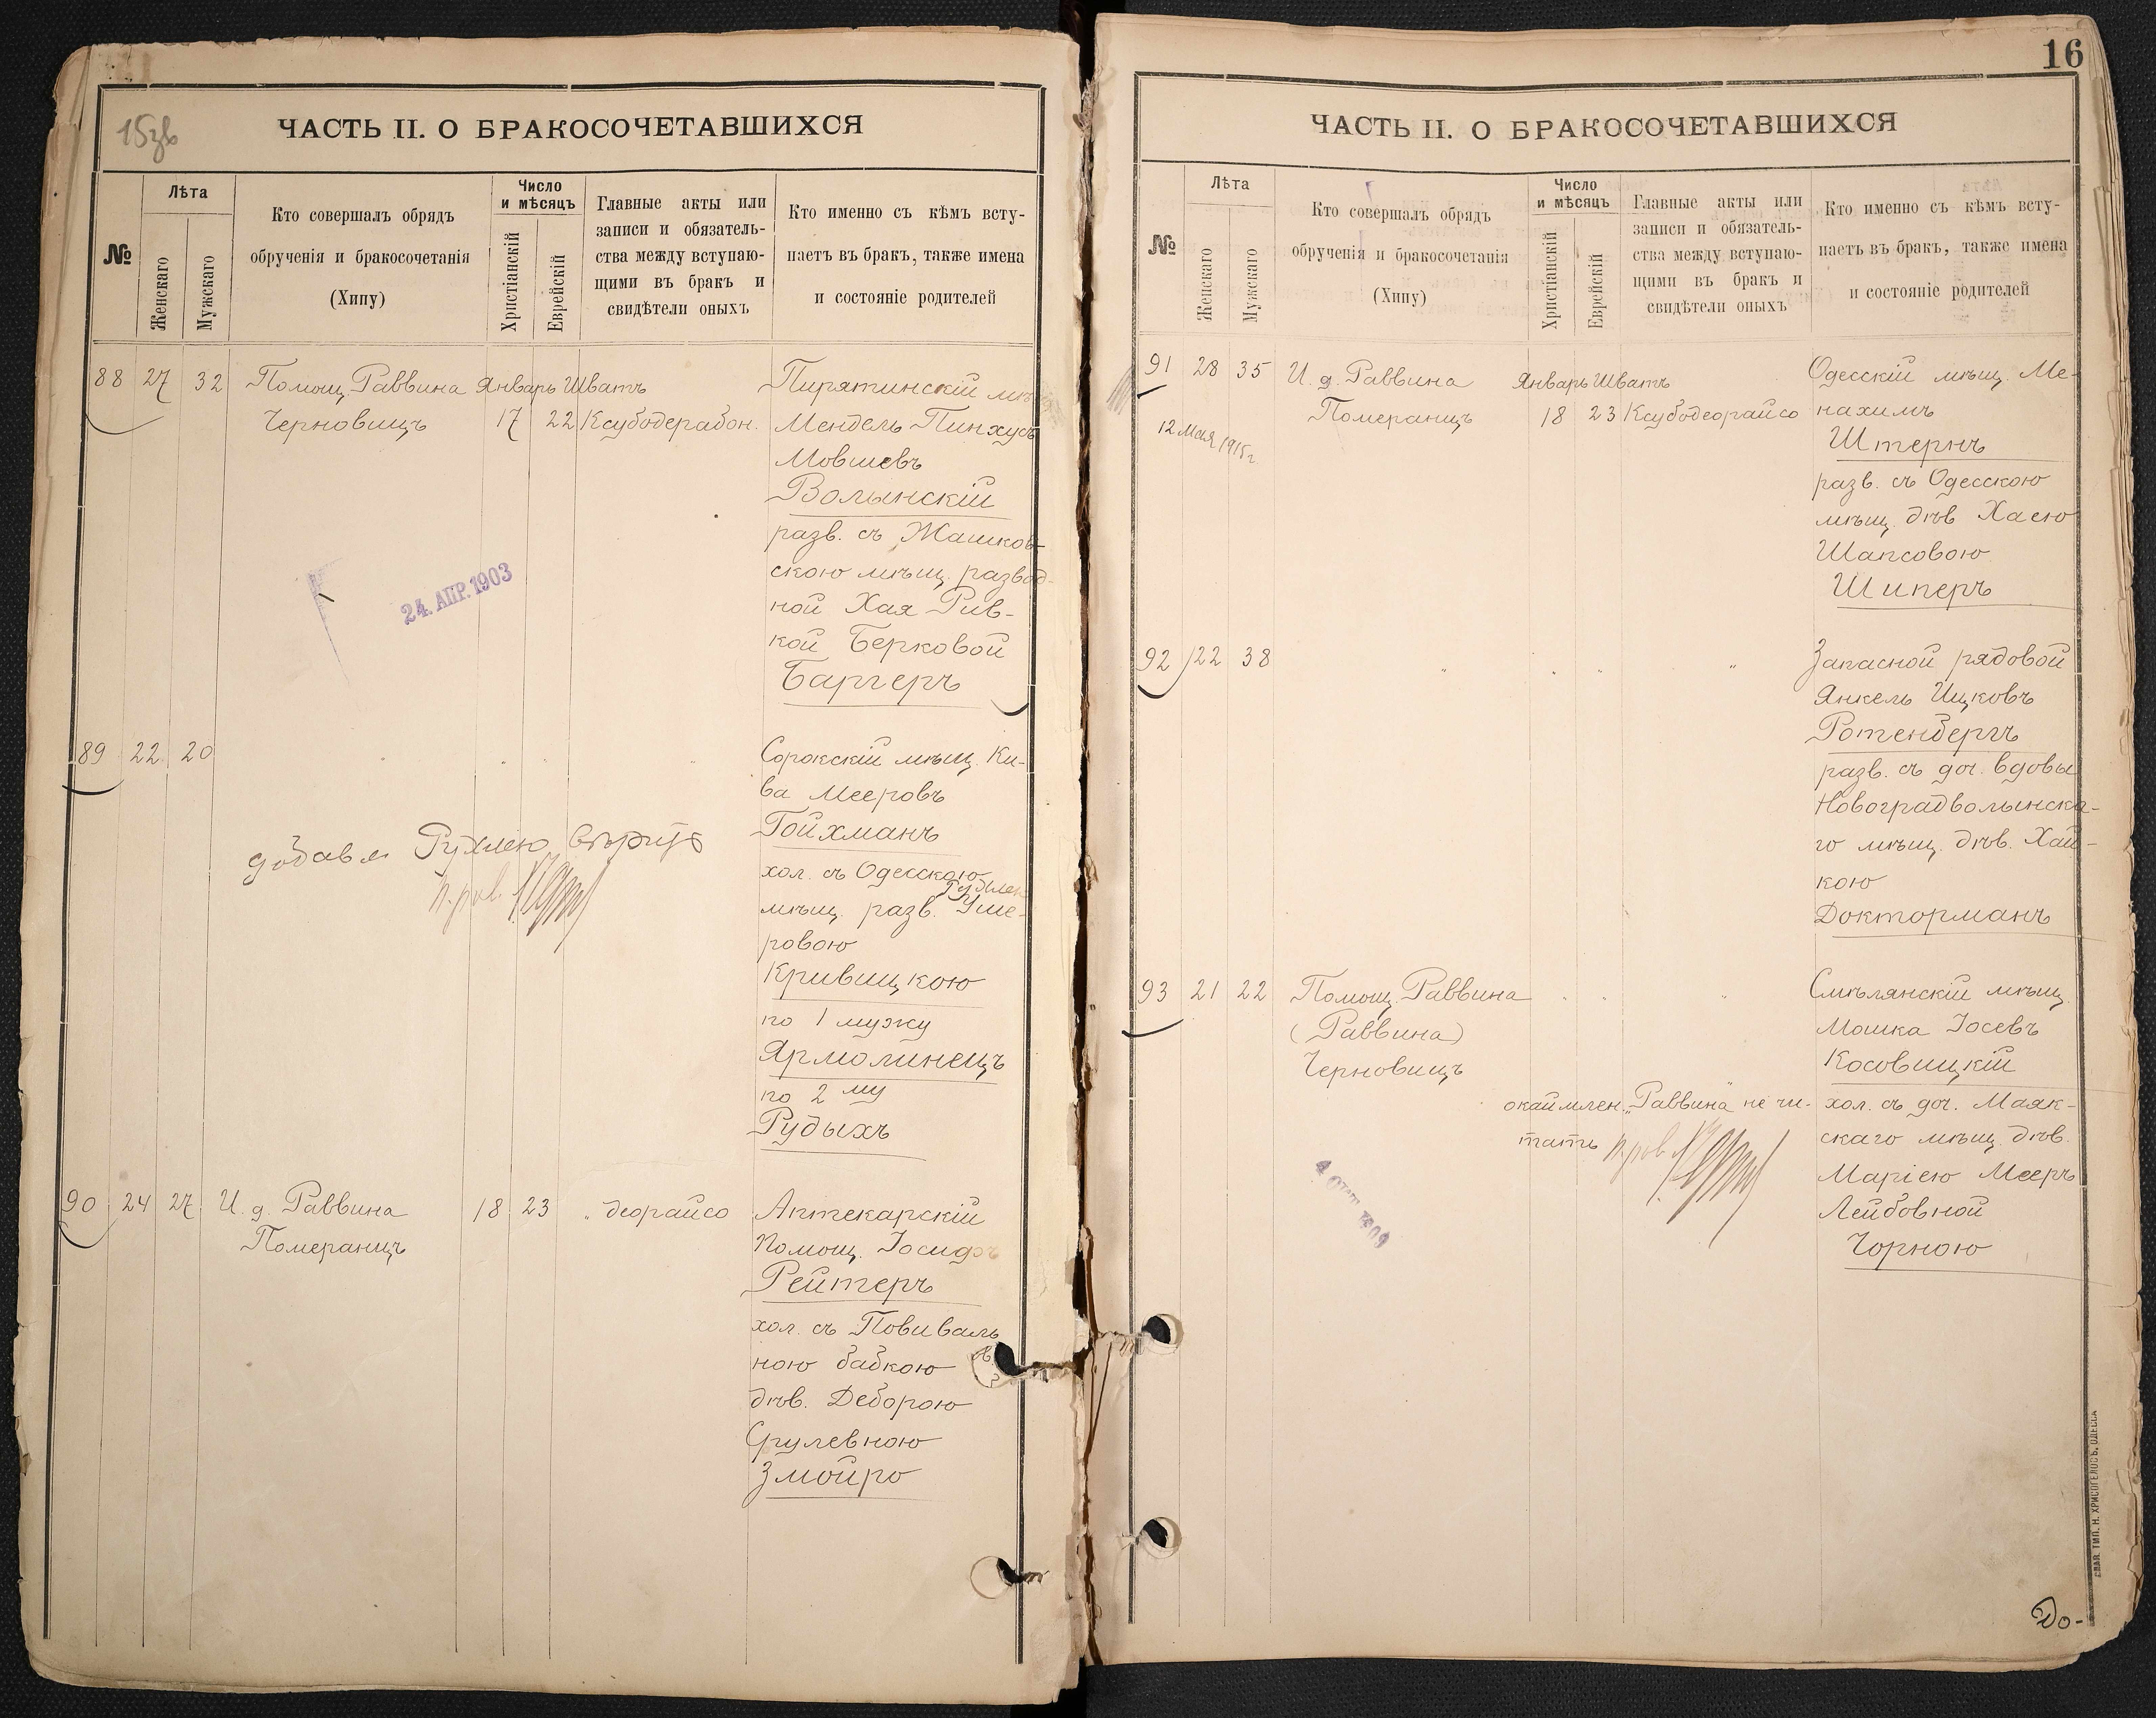 15зв
ЧАСТЬ II. О БРАКОСОЧЕТАВШИХСЯ
№
Лѣта
Женскаго
Мужскаго
Кто совершалъ обрядъ
обрученія и бракосочетанія
(Хипу)
Число
и мѣсяцъ
Христіанскій
Еврейскій
Главные акты или
записи и обязатель-
ства между вступаю-
щими въ бракъ и
свидѣтели оныхъ
Кто именно съ кѣмъ всту-
паетъ въ бракъ, также имена
и состояніе родителей
88 27 32 Помощ. Раввина Январь Шватъ Пирятинскій мѣщ.
Черновицъ 17 22 Ксубодерабон. Мендель Пинхусъ
Мовшевъ
Волынскій
разв. съ Жашков-
скою мѣщ. развод-
ной Хая Рив-
кой Берковой
Баргеръ
24. АПР. 1903
89 22 20 " " " Сорокскій мѣщ. Ки-
ва Мееровъ
Гойхманъ
хол. съ Одесскою
Рухлею
мѣщ. разв. Уше-
ровою
Кривицкою
по 1 мужу
Ярмолинецъ
по 2 му
Рудыхъ
добавл. Рухлею вѣрить
п. рав.
90 24 27 И. д. Раввина 18 23 " деорайсо Аптекарскій
Померанцъ Помощ. Іосифъ
Рейтеръ
хол. съ Повиваль
ною бабкою
дѣв. Деборою
Срулевною
Змойро
16
ЧАСТЬ II. О БРАКОСОЧЕТАВШИХСЯ
№
Лѣта
Женскаго
Мужскаго
Кто совершалъ обрядъ
обрученія и бракосочетанія
(Хипу)
Число
и мѣсяцъ
Христіанскій
Еврейскій
Главные акты или
записи и обязатель-
ства между вступаю-
щими въ бракъ и
свидѣтели оныхъ
Кто именно съ кѣмъ всту-
паетъ въ бракъ, также имена
и состояніе родителей
91 28 35 И. д. Раввина Январь Шватъ Одесскій мѣщ. Ме-
Померанцъ 18 23 Ксубодеорайсо нахимъ
12 Мая 1915 г
Штернъ
разв. съ Одесскою
мѣщ. дѣв. Хасею
Шапсовою
Шиперъ
92 22 38 " " " " Запасной рядовой
Янкель Ицковъ
Ротенбергъ
разв. съ доч. вдовы
Новоградволынска-
го мѣщ. дѣв. Хай-
кою
Докторманъ
93 21 22 Помощ. Раввина " " " Смѣлянскій мѣщ.
(Раввина) Мошка Іосевъ
Черновицъ Косовицкій
хол. съ доч. Маяк-
скаго мѣщ. дѣв.
Маріею Мееръ
Лейбовной
Чорною
окаймлен. „Раввина" не чи-
тать п. рав.
До-
ТИП. Н. ХРИСОГЕЛОСЪ, ОДЕССА